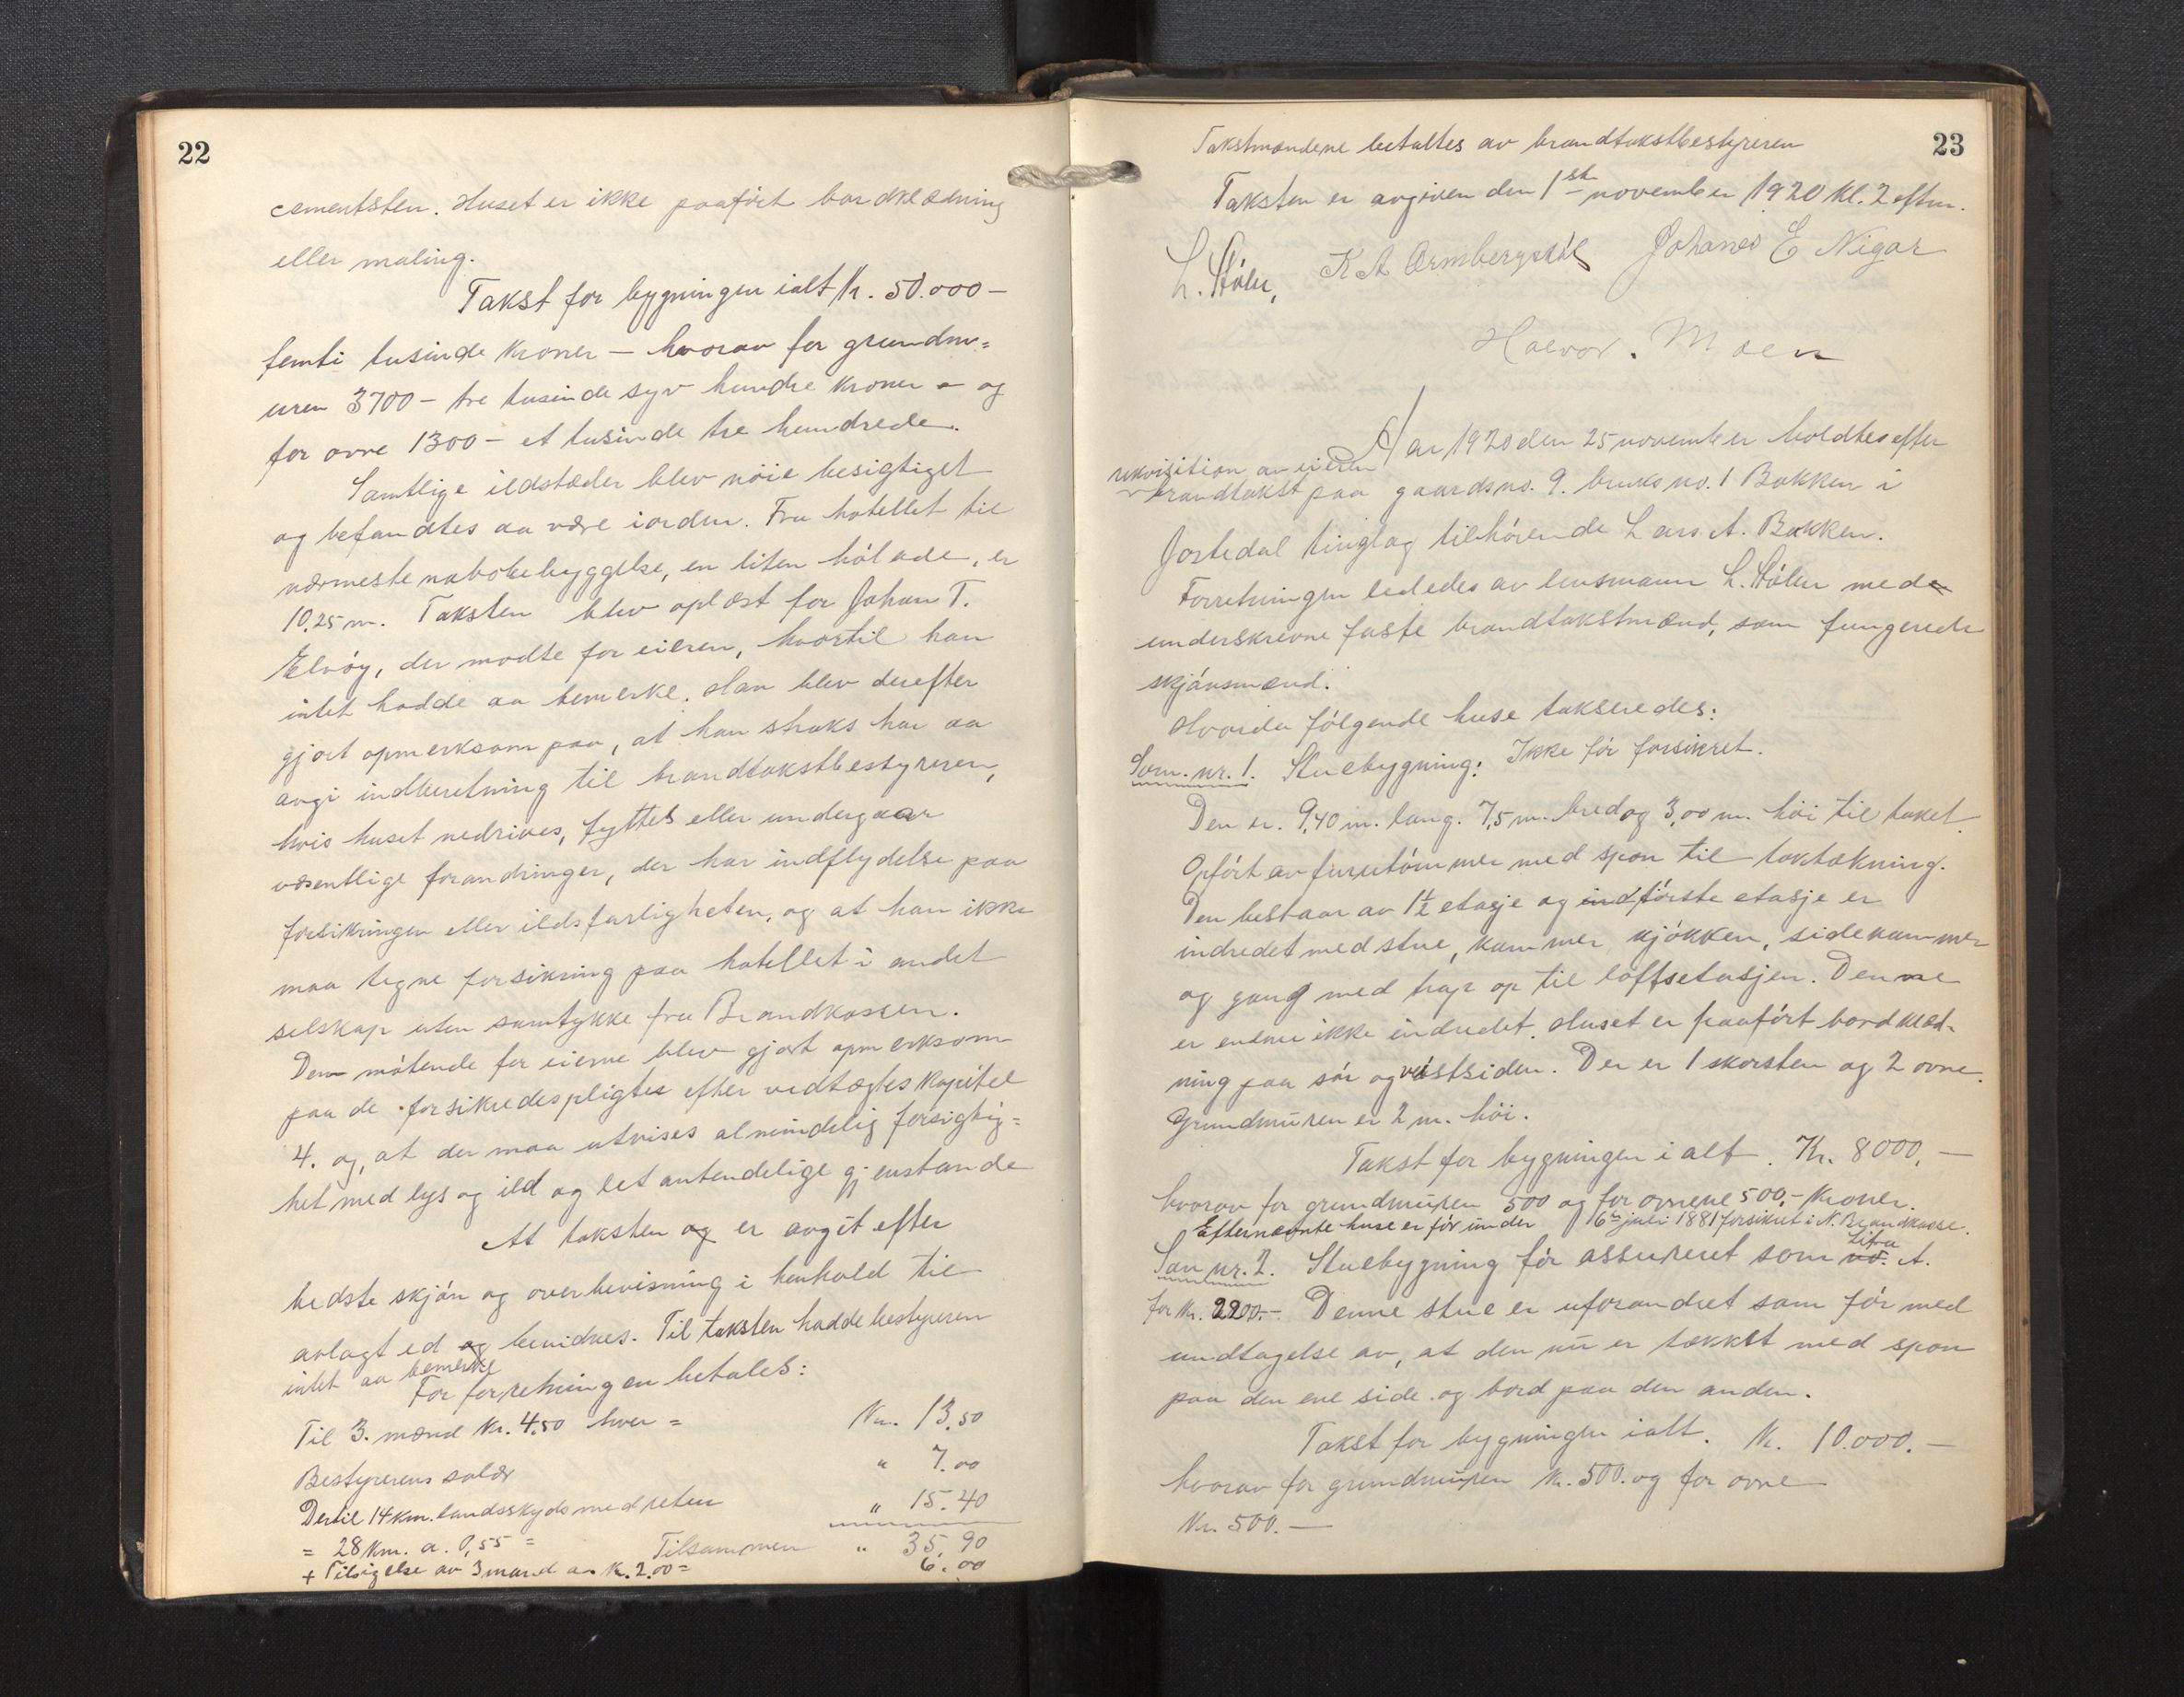 22
cementsten. Huset er ikke paaført bordklædning
eller maling.
Takst for bygningen ialt Kr. 50.000 –
femti tusinde kroner – hvorav for grundmu=
uren 3700 – tre tusinde syv hundre kroner – og
for ovne 1300 – et tusinde tre hundrede.
Samtlige ildstæder blev nöie besigtiget
og befandtes aa være iorden. Fra hotellet til
nærmeste nabobebyggelse, en liten hölade, er
10,25 m. Taksten blev oplæst for Johan T.
Elvöy, der mødte for eieren, hvortil han
intet hadde aa bemerke. Han blev derefter
gjort opmerksom paa, at han straks har aa
avgi indberetning til brandtakstbestyreren,
hvis huset nedrives, fyttes eller undergaar
væsentlige forandringer, der har indflydelse paa
forsikringen eller ildsfarligheten, og at han ikke
maa tegne forsikring paa hotellet i andet
selskap uten samtykke fra Brandkassen.
Den mötende for eierne blev gjort opmerksom
paa de forsikredes pligter efter vedtægtes kapitel
4. og, at der maa utvises almindelig forsigtig=
het med lys og ild og let antendelige gjenstande
At taksten og er avgit efter
bedste skjön og overbevisning i henhold til
avlagt ed og bevidnes. Til taksten hadde bestyreren
intet aa bemerke
For forretningen betales:
Til 3. mænd Kr. 4.50 hver = Kr. 13,50
Bestyrerens salær " 7.00
Dertil 14 km. landsskyds med retur " 15.40
= 28 km. a. 0,55 = Tilsammen " 35,90
+ Tilsigelse av 3 mand a. K. 2.00 = 6.00
23
Takstmændene betaltes av brandtakstbestyreren
Taksten er avgiven den 1ste november 1920 kl. 2 eftm.
L. Stölen, K A Ormbergstöl Johanes E Nigar
Halvor. Moen
Aar 1920 den 25 november holdtes efter
rekvisition av eieren
brandtakst paa gaardsno. 9. bruksno. 1 Bakken i
Jostedal tinglag tilhörende Lars A. Bakken.
Forretningen lededes av lensmann L. Stölen med
underskrevne faste brandtakstmænd, som fungerede
skjönsmænd.
Hvorda fölgende huse takseredes:
Som. nr. 1. Stuebygning: Ikke för forsikret.
Den er. 9,40 m. lang. 7,5 m. bred og 3,00 m. höi til taket.
Opfört av furutömmer med spon til taktækning.
Den bestaar av 1½ etasje og ind förste etasje er
indredet med stue, kammer, kjökken, sidekammer
og gang med trap op til loftsetasjen. Denne
er endnu ikke indredet. Huset er paafört bordklæd-
ning paa sör og västsiden. Der er 1 skorsten og 2 ovne.
Grundmuren er 2 m. höi.
Takst for bygningen i alt. Kr. 8000, –
hvorav for grundmuren 500 og for ovnene 500,- kroner.
Efternævnte huse er för under 16de juli 1881 forsikret i N. Brandkasse.
Som nr. 2. Stuebygning för assureret som no. Litra A.
for Kr. 2200.– Denne stue er uforandret som för med
undtagelse av, at den nu er tækkst med spon
paa den ene side og bord paa den anden.
Takst for bygningen ialt. K. 10.000. –
hvorav for grundmuren Kr. 500. og for ovne
Kr. 500. –